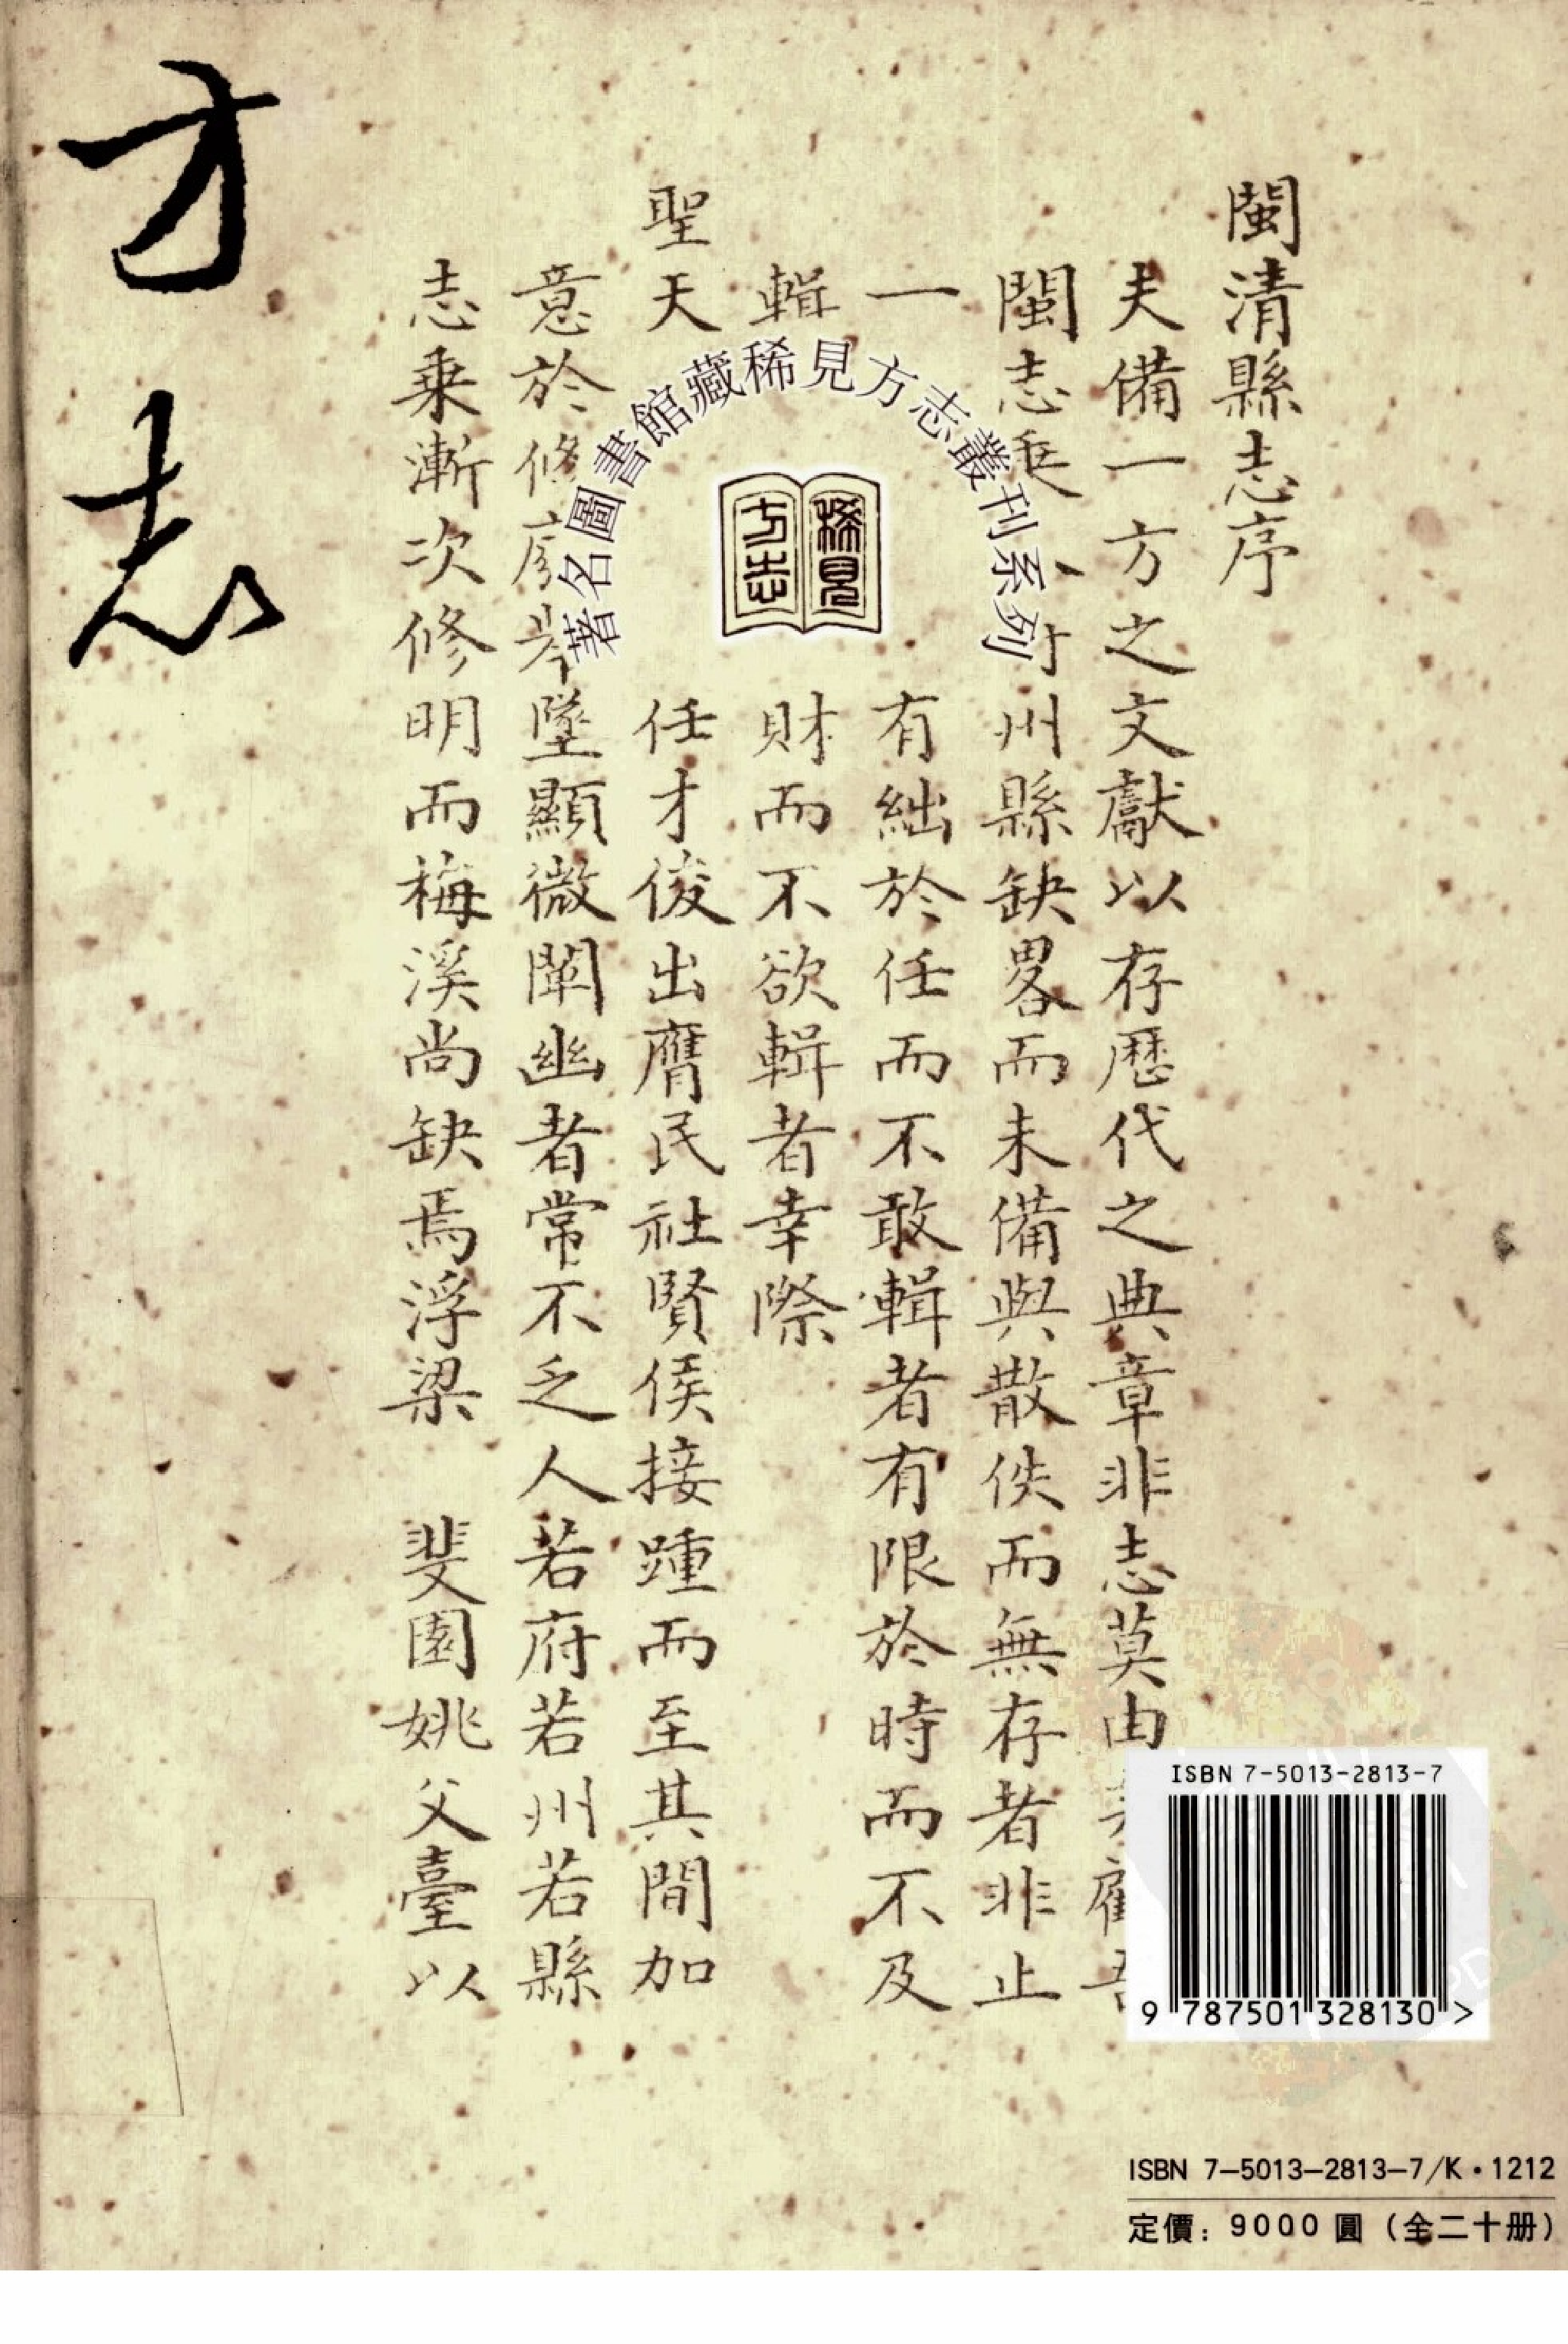 閩清縣志序
夫備一方之文獻以存歷代之典章非志莫由
閩志乘州縣缺畧而未備與散佚而無存者非止
一有絀於任而不敢輯者有限於時而不及
輯財而不欲輯者幸際
聖天任才俊出膺民社賢侯接踵而至其間加
意於修墜顯微闡幽者常不乏人若府若州若縣
志乗漸次修明而梅溪尚缺焉浮梁 斐園姚父臺以
方志
著名圖書館藏稀見方志叢刊系列
稀見方志
ISBN 7-5013-2813-7
9 787501 328130 >
ISBN 7-5013-2813-7/K·1212
定價：9000 圓（全二十册）